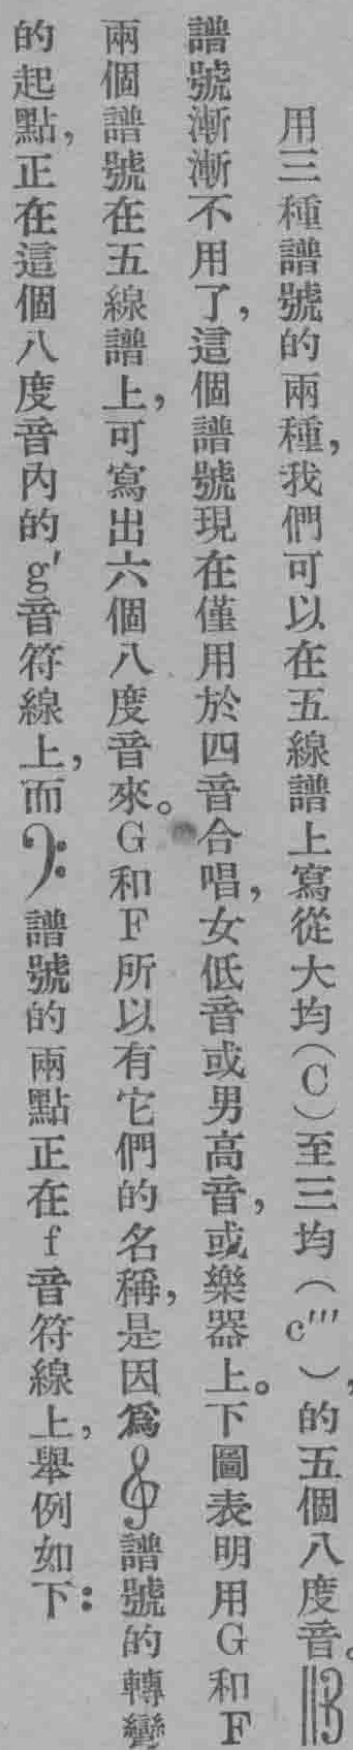 用三種譜號的兩種，我們可以在五線譜上寫從大均(C)至三均(c''')的五個八度音。𝄡
譜號漸漸不用了，這個譜號現在僅用於四音合唱，女低音或男高音，或樂器上。下圖表明用G和F
兩個譜號在五線譜上，可寫出六個八度音來。G和F所以有它們的名稱，是因爲𝄞譜號的轉彎
的起點，正在這個八度音內的g'音符線上，而𝄢譜號的兩點正在f音符線上，舉例如下：